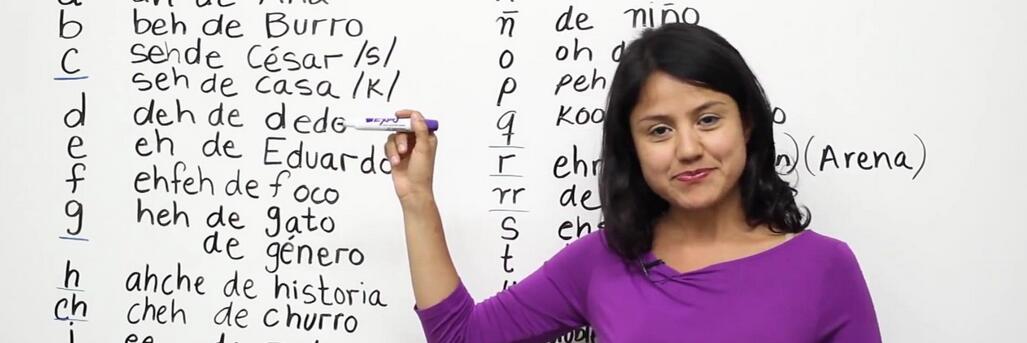 b beh de Burro
c sehde César /s/
seh de casa /k/
d deh de dedo
e eh de Eduardo
f ehfeh de foco
g heh de gato
de género
h ahche de historia
ch cheh de churro
ñ de niño
o oh
p peh
q koo
r (Arena)
rr de
s
t
EXPO